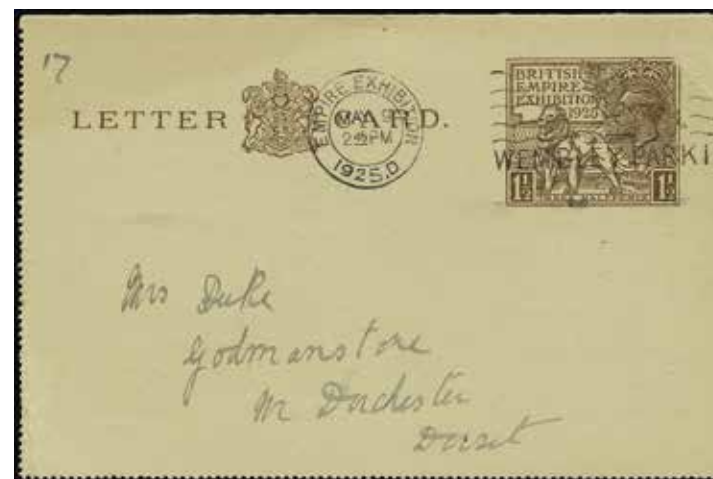 17
LETTER CARD.
EMPIRE EXHIBITION
MAY 9
2 PM
1925.D
BRITISH
EMPIRE
EXHIBITION
1925
WEMBLEY PARK
1½ 1½
Mrs Duke
Godmanstone
Nr Dorchester
Dorset